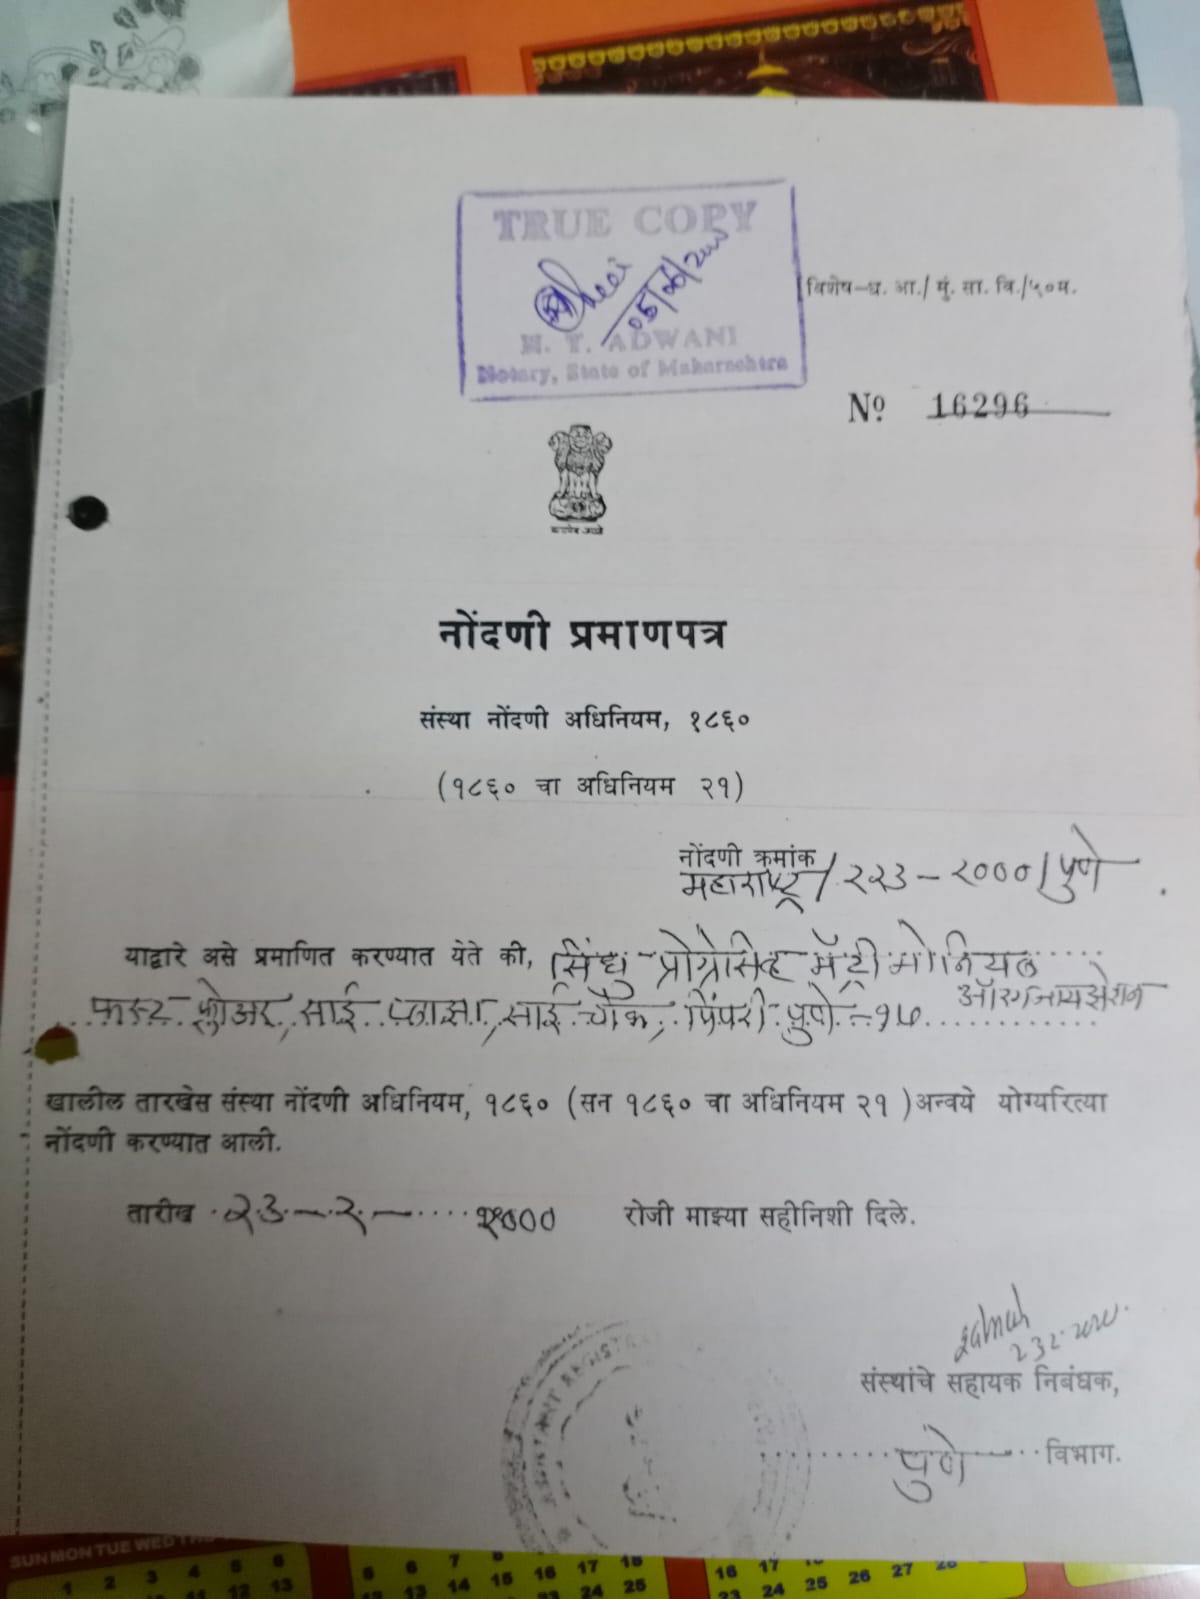 TRUE COPY
05/06/2000
N. T. ADWANI
Notary, State of Maharashtra
विशेष—ध. आ./ मुं. सा. वि./५०म.
Nº 16296
नोंदणी प्रमाणपत्र
संस्था नोंदणी अधिनियम, १८६०
(१८६० चा अधिनियम २१)
नोंदणी क्रमांक
महाराष्ट्र/२२३-२०००/पुणे
याद्वारे असे प्रमाणित करण्यात येते की, सिंधु प्रोग्रेसिव्ह मॅट्रीमोनियल
ऑरगनायझेशन
फस्ट फ्लोअर, साई प्लाझा, साई चौक, पिंपरी पुणे-१७
खालील तारखेस संस्था नोंदणी अधिनियम, १८६० (सन १८६० चा अधिनियम २१ ) अन्वये योग्यरित्या
नोंदणी करण्यात आली.
तारीख २३-२-२००० रोजी माझ्या सहीनिशी दिले.
23.2.2000
संस्थांचे सहायक निबंधक,
पुणे विभाग.
ASSISTANT REGISTRA
SUN MON TUE WED THU
1 2 3 4 5 6
11 12 13
5 6 7 8
12 13 14 15 16 17 18
23 24 25
16 17
23 24 25 26 27 28